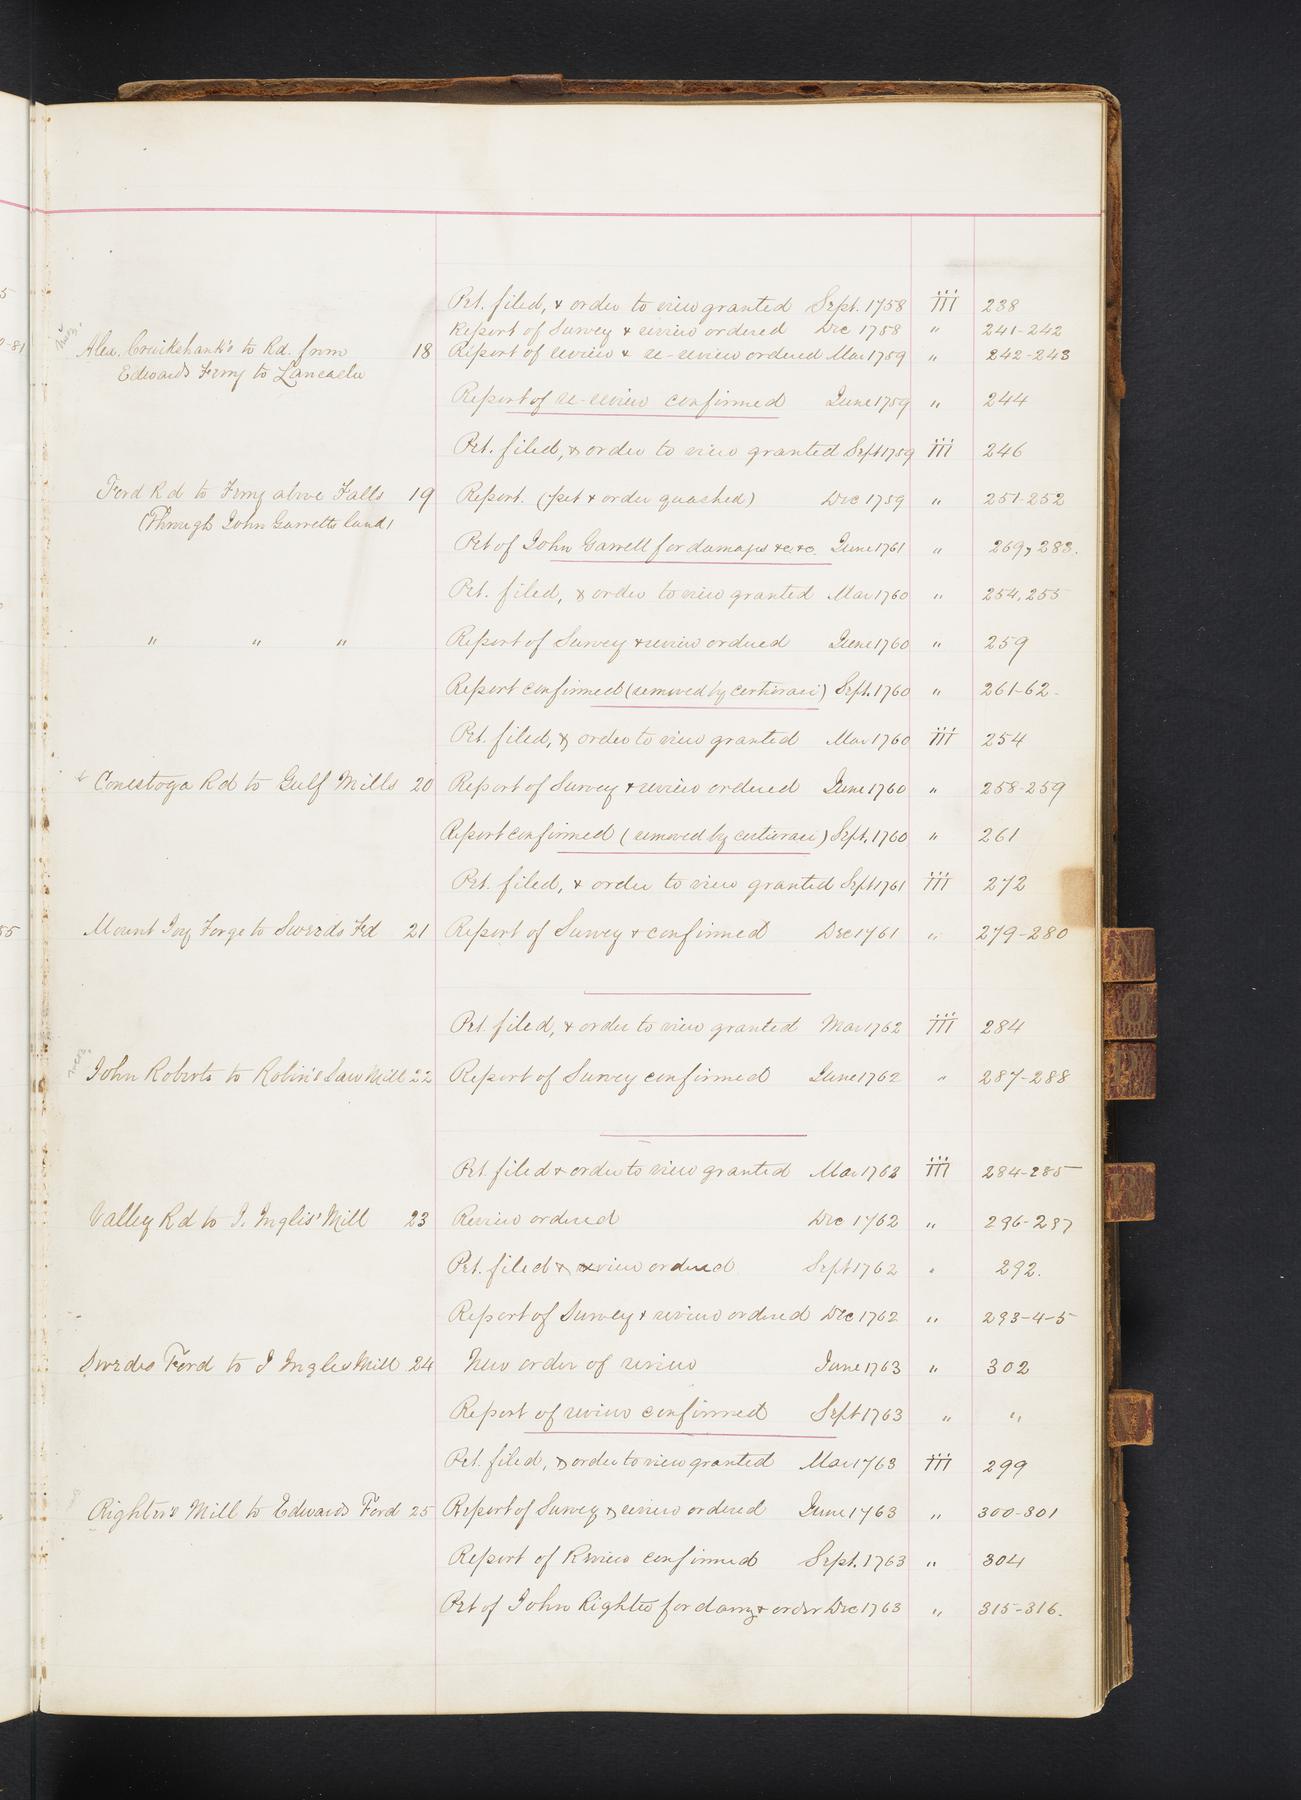 Pet. filed, & order to view granted Sept. 1758 III 238
Report of Survey & review ordered Dec 1758 " 241-242
Alex. Cruikshank's to Rd. from 18 Report of review & re-review ordered Mar 1759 " 242-243
Edwards Ferry to Lancaster
Report of re-review confirmed June 1759 " 244
Pet. filed, & order to view granted Sept 1759 III 246
Ford Rd to Ferry above Falls 19 Report. (pet & order quashed) Dec 1759 " 251-252
(Through John Garretts land)
Pet of John Garrell for damages &c. &c. June 1761 " 269, 283.
Pet. filed, & order to view granted Mar 1760 " 254, 255
" " " Report of Survey & review ordered June 1760 " 259
Report confirmed (removed by certiorari) Sept. 1760 " 261-62.
Pet. filed, & order to view granted Mar 1760 III 254
Conestoga Rd to Gulf Mills 20 Report of Survey & review ordered June 1760 " 258-259
Report confirmed (removed by certiorari) Sept. 1760 " 261
Pet. filed, & order to view granted Sept 1761 III 272
Mount Joy Forge to Sweeds Fd 21 Report of Survey & confirmed Dec 1761 " 279-280
Pet. filed, & order to view granted Mar 1762 III 284
John Roberts to Robin's Saw Mill 22 Report of Survey confirmed June 1762 " 287-288
Pet. filed & order to view granted Mar 1762 III 284-285
Valley Rd to J. Inglis' Mill 23 Review ordered Dec 1762 " 296-297
Pet. filed & review ordered Sept 1762 " 292.
Report of Survey & review ordered Dec 1762 " 293-4-5
Swedes Ford to J Inglis Mill 24 New order of review June 1763 " 302
Report of review confirmed Sept 1763 " "
Pet. filed, & order to view granted Mar 1763 III 299
Righter's Mill to Edwards Ford 25 Report of Survey & review ordered June 1763 " 300-301
Report of Review confirmed Sept. 1763 " 304
Pet of John Righter for damg & order Dec 1763 " 315-316.